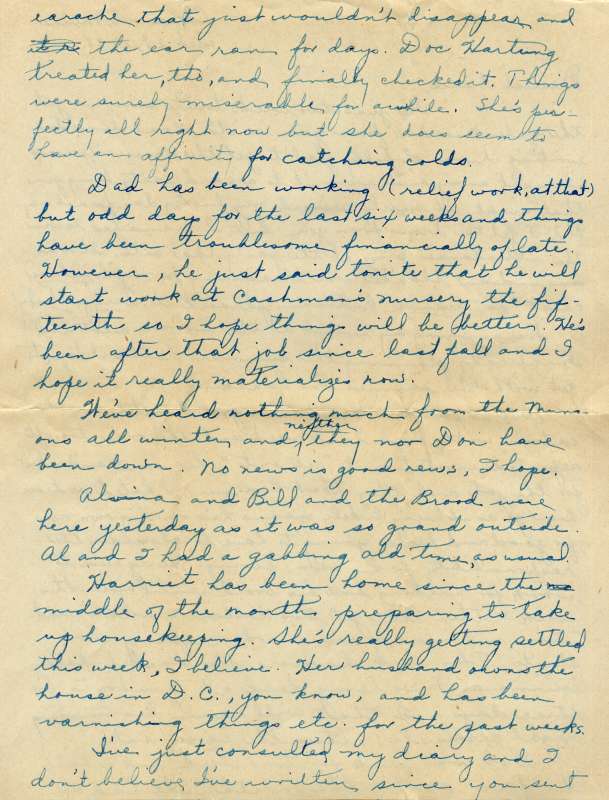 earache that just wouldn't disappear and
the ear ran for days. Doc Hartung
treated her, tho, and finally checked it. Things
were surely miserable for awhile. She's per-
fectly all right now but she does seem to
have an affinity for catching colds.
Dad has been working (relief work, at that)
but odd days for the last six weeks and things
have been troublesome financially of late.
However, he just said tonite that he will
start work at Cashman's nursery the fif-
teenth so I hope things will be better. He's
been after that job since last fall and I
hope it really materializes now.
We've heard nothing much from the Muns-
ons all winter and neither they nor Don have
been down. No news is good news, I hope.
Alvina and Bill and the Brood were
here yesterday as it was so grand outside.
Al and I had a gabbing old time, as usual.
Harriet has been home since the
middle of the month preparing to take
up housekeeping. She's really getting settled
this week, I believe. Her husband owns the
house in D.C., you know, and has been
varnishing things etc. for the past weeks.
I've just consulted my diary and I
don't believe I've written since you sent